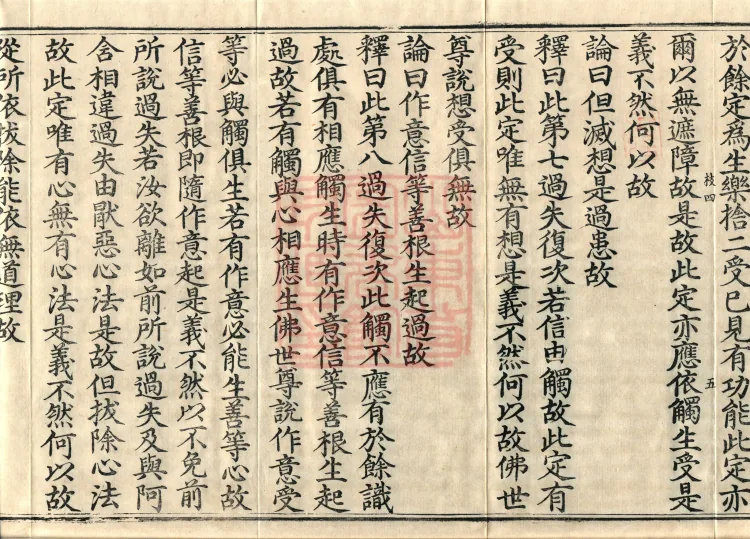 於餘定為生樂捨二受已見有功能此定亦
爾以無遮障故是故此定亦應依觸生受是
義不然何以故
論曰但滅想是過患故
釋曰此第七過失復次若信由觸故此定有
受則此定唯無有想是義不然何以故佛世
尊說想受俱無故
論曰作意信等善根生起過故
釋曰此第八過失復次此觸不應有於餘識
處俱有相應觸生時有作意信等善根生起
過故若有觸與心相應生佛世尊說作意受
等必與觸俱生若有作意必能生善等心故
信等善根即隨作意起是義不然以不免前
所說過失若汝欲離如前所說過失及與阿
含相違過失由厭惡心法是故但拔除心法
故此定唯有心無有心法是義不然何以故
從所依拔除能依無道理故
枝四
五